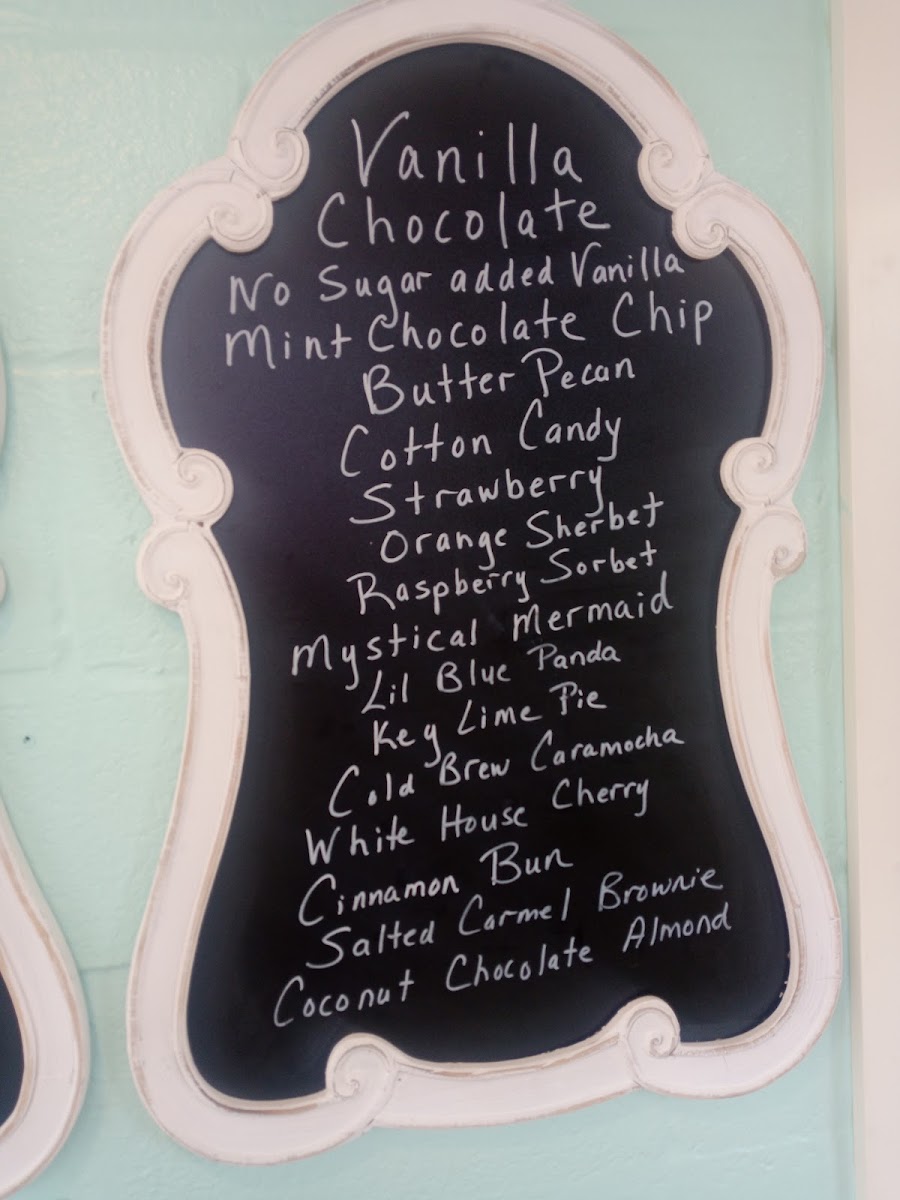 Vanilla
Chocolate
No Sugar added Vanilla
Mint Chocolate Chip
Butter Pecan
Cotton Candy
Strawberry
Orange Sherbet
Raspberry Sorbet
Mystical Mermaid
Lil Blue Panda
Key Lime Pie
Cold Brew Caramocha
White House Cherry
Cinnamon Bun
Salted Carmel Brownie
Coconut Chocolate Almond